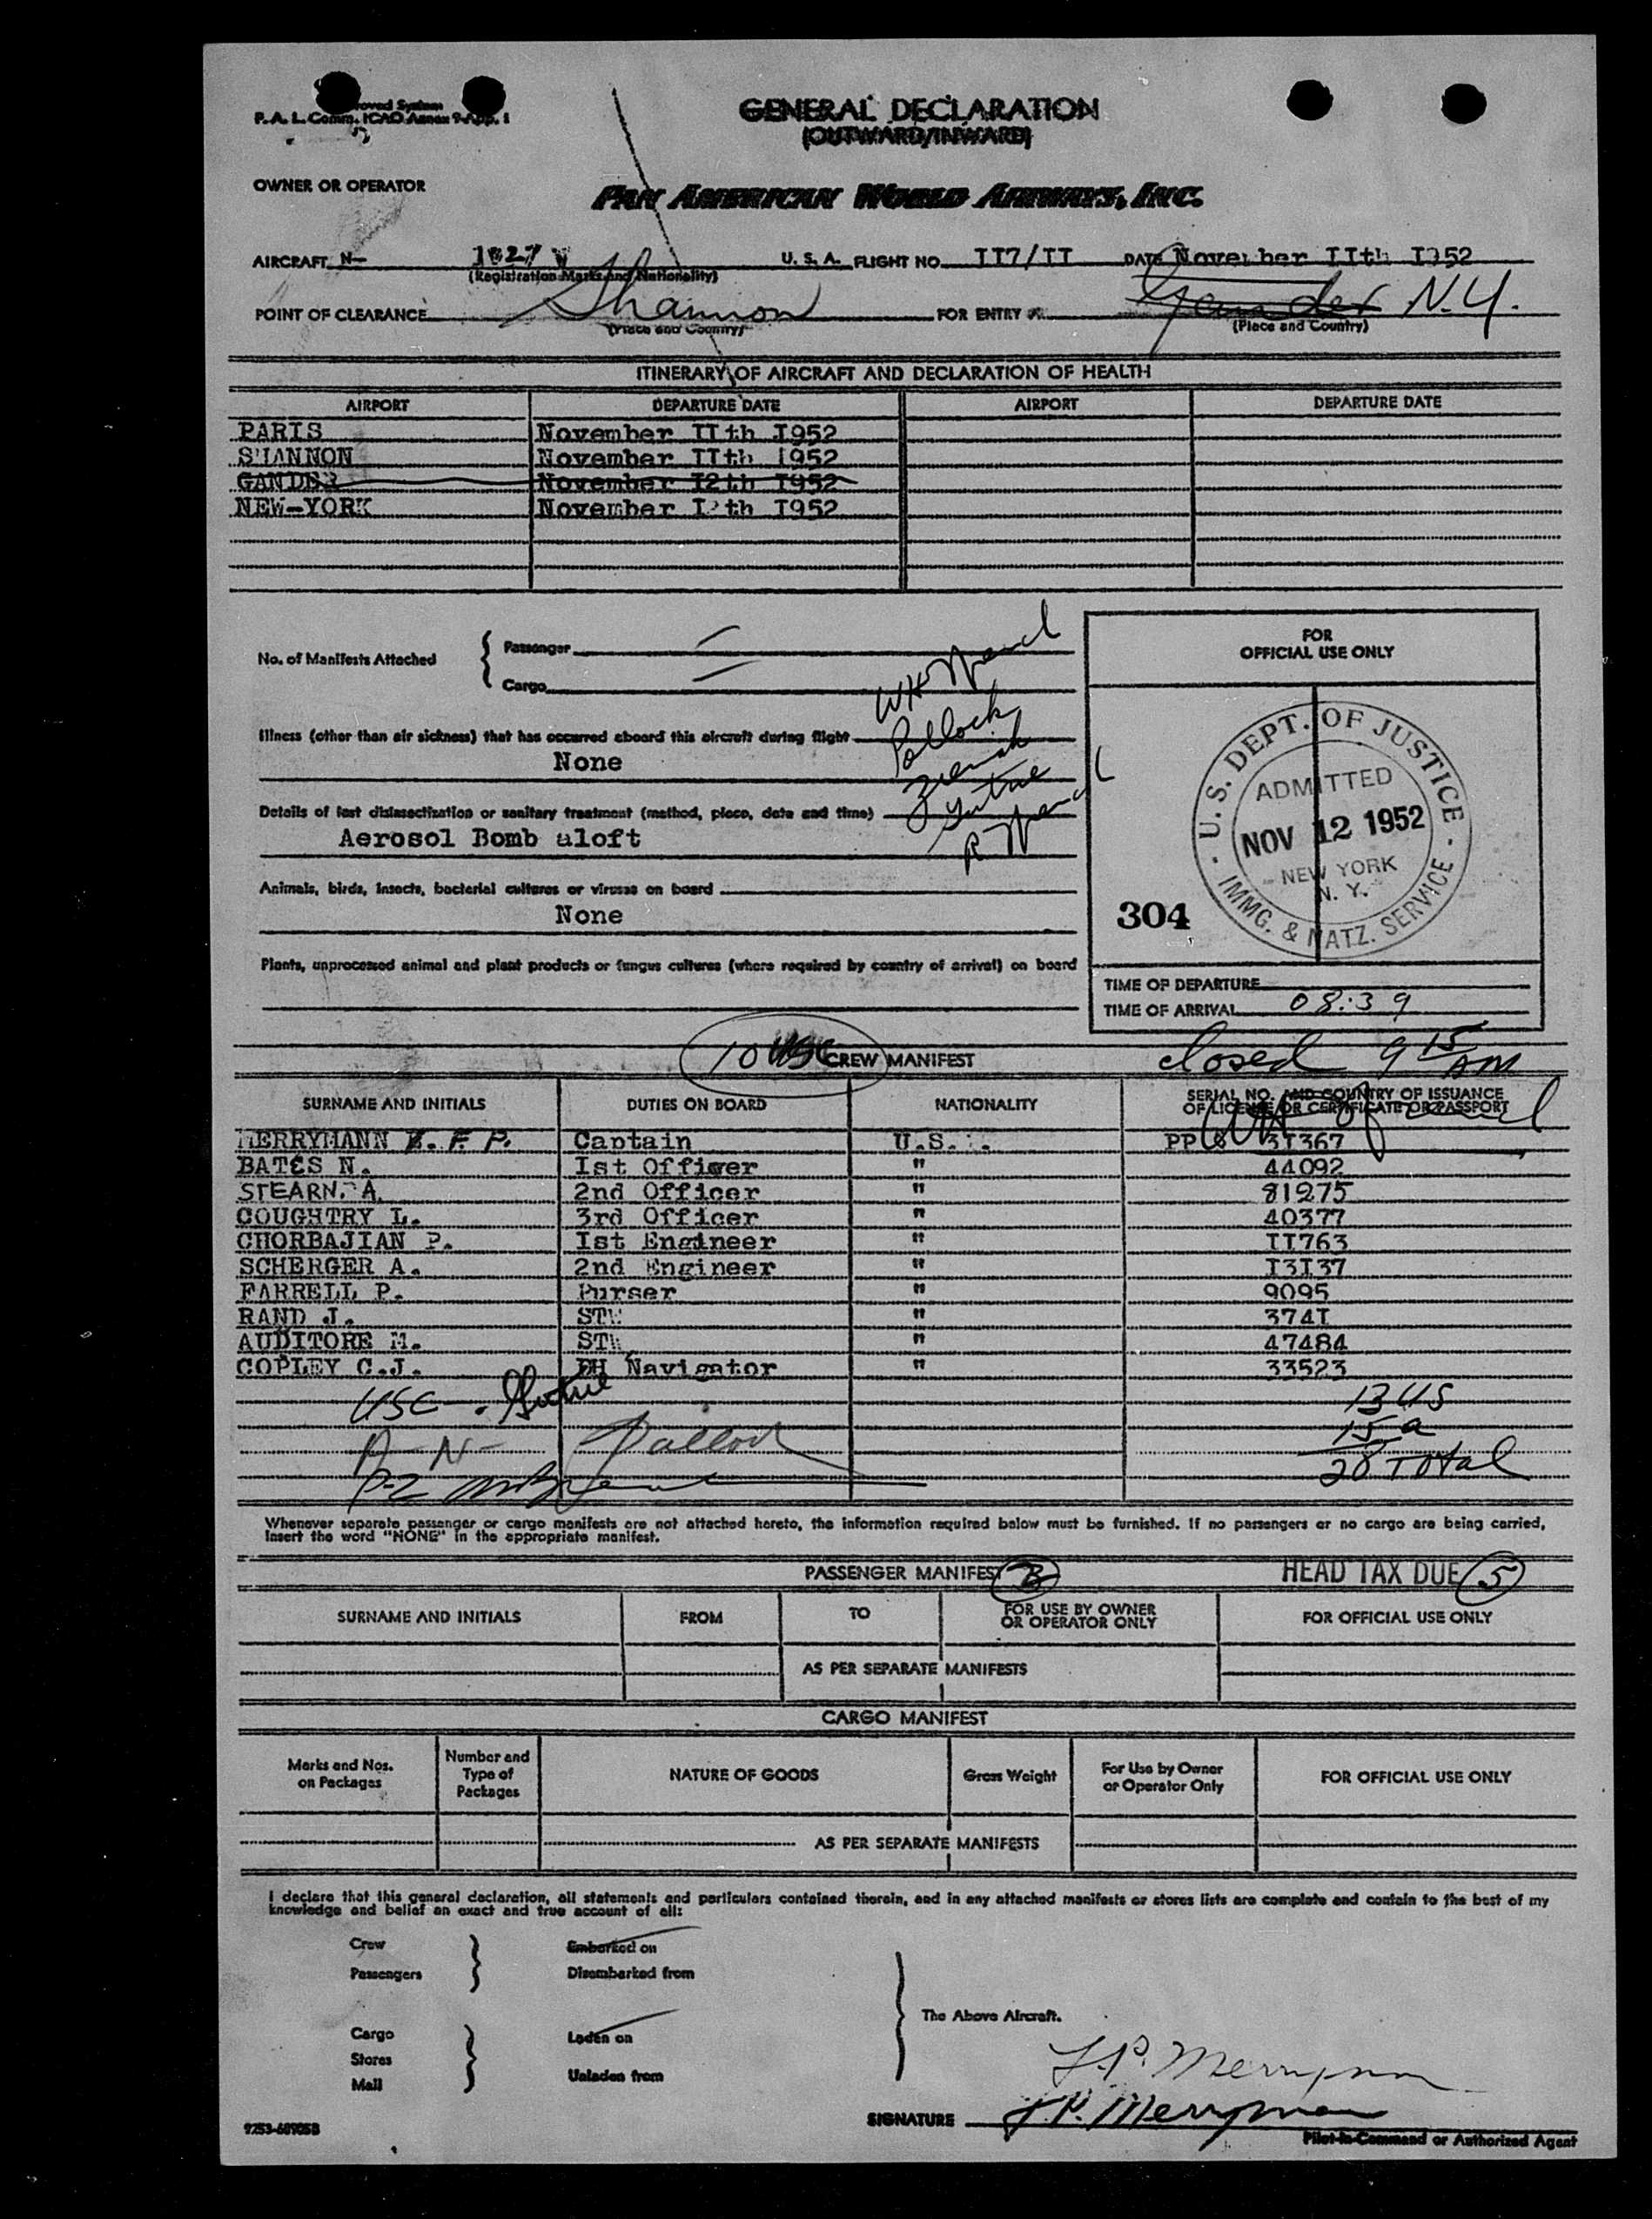 P. A. L. Comm. ICAO Annex 9-App. 1
GENERAL DECLARATION
(OUTWARD/INWARD)
OWNER OR OPERATOR
PAN AMERICAN WORLD AIRWAYS, INC.
AIRCRAFT N- 1027 V U. S. A. FLIGHT NO. II7/II DATE November IIth I952
(Registration Marks and Nationality)
POINT OF CLEARANCE Shannon FOR ENTRY Gander N.Y.
(Place and Country) (Place and Country)
ITINERARY OF AIRCRAFT AND DECLARATION OF HEALTH
AIRPORT DEPARTURE DATE AIRPORT DEPARTURE DATE
PARIS November IIth I952
SHANNON November IIth I952
GANDER November I2th I952
NEW-YORK November I2th I952
No. of Manifests Attached
Passenger
Cargo
Illness (other than air sickness) that has occurred aboard this aircraft during flight
None
Pollock
Details of last disinsectization or sanitary treatment (method, place, date and time)
Aerosol Bomb aloft
Animals, birds, insects, bacterial cultures or viruses on board
None
Plants, unprocessed animal and plant products or fungus cultures (where required by country of arrival) on board
FOR
OFFICIAL USE ONLY
U.S. DEPT. OF JUSTICE
ADMITTED
NOV 12 1952
NEW YORK
N. Y.
IMMG. & NATZ. SERVICE
304
TIME OF DEPARTURE
TIME OF ARRIVAL 08:39
closed 9 15 AM
10 USC CREW MANIFEST
SURNAME AND INITIALS DUTIES ON BOARD NATIONALITY SERIAL NO. AND COUNTRY OF ISSUANCE
OF LICENSE OR CERTIFICATE OR PASSPORT
MERRYMANN F. P. Captain U.S. PP 31367
BATES N. Ist Officer " 44092
STEARN. A. 2nd Officer " 81275
COUGHTRY L. 3rd Officer " 40377
CHORBAJIAN P. Ist Engineer " II763
SCHERGER A. 2nd Engineer " I3I37
FARRELL P. Purser " 9095
RAND J. STW " 374I
AUDITORE M. STW " 47484
COPLEY C.J. DH Navigator " 33523
USC - Guthrie 13 US
A - N - Pollock 15 a
P-2 28 Total
Whenever separate passenger or cargo manifests are not attached hereto, the information required below must be furnished. If no passengers or no cargo are being carried,
insert the word "NONE" in the appropriate manifest.
PASSENGER MANIFEST HEAD TAX DUE 5
SURNAME AND INITIALS FROM TO FOR USE BY OWNER
OR OPERATOR ONLY FOR OFFICIAL USE ONLY
AS PER SEPARATE MANIFESTS
CARGO MANIFEST
Marks and Nos.
on Packages
Number and
Type of
Packages
NATURE OF GOODS
Gross Weight
For Use by Owner
or Operator Only
FOR OFFICIAL USE ONLY
AS PER SEPARATE MANIFESTS
I declare that this general declaration, all statements and particulars contained therein, and in any attached manifests or stores lists are complete and contain to the best of my
knowledge and belief an exact and true account of all:
Crew
Passengers
Embarked on
Disembarked from
Cargo
Stores
Mail
Laden on
Unladen from
The Above Aircraft.
F.P. Merryman
SIGNATURE F.P. Merryman
Pilot-in-Command or Authorized Agent